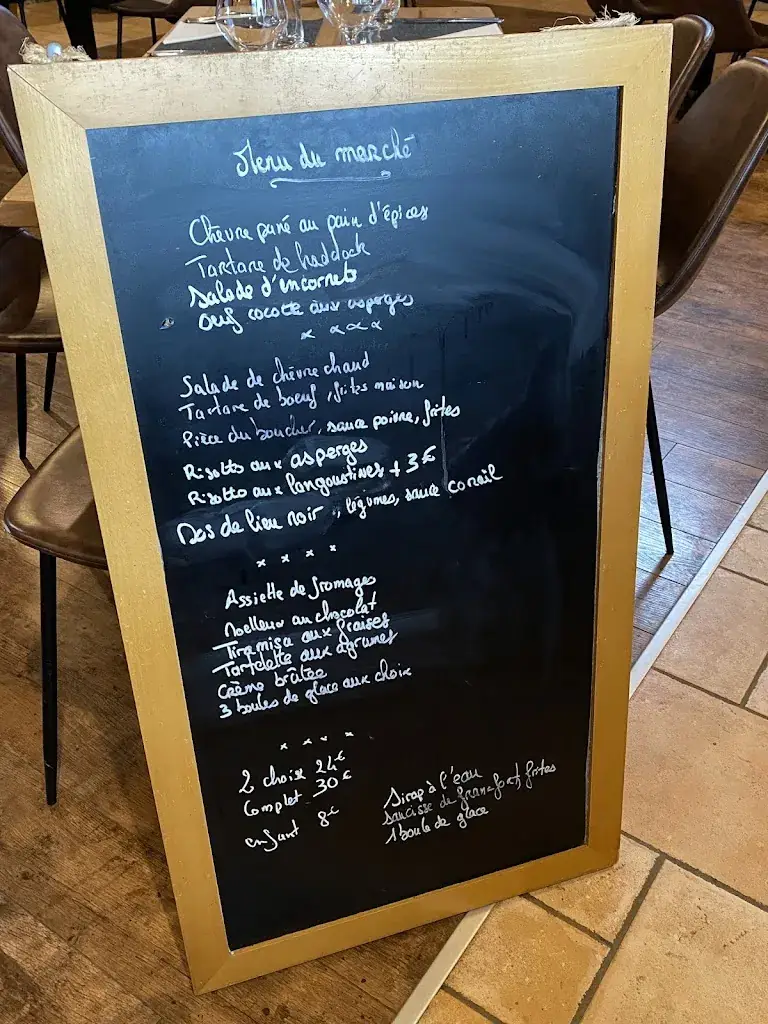 Menu du marché
Chèvre pané au pain d'épices
Tartare de haddock
Salade d'encornets
Oeuf cocotte aux asperges
x x x x
Salade de chèvre chaud
Tartare de boeuf, frites maison
Pièce du boucher, sauce poivre, frites
Risotto aux asperges
Risotto aux langoustines + 3€
Dos de lieu noir, légumes, sauce corail
x x x x
Assiette de fromages
Moelleux au chocolat
Tiramisu aux fraises
Tartelette aux agrumes
Crème brûlée
3 boules de glace aux choix
x x x x
2 choix 24€
Complet 30€
enfant 8€
Sirop à l'eau
saucisse de francfort, frites
1 boule de glace